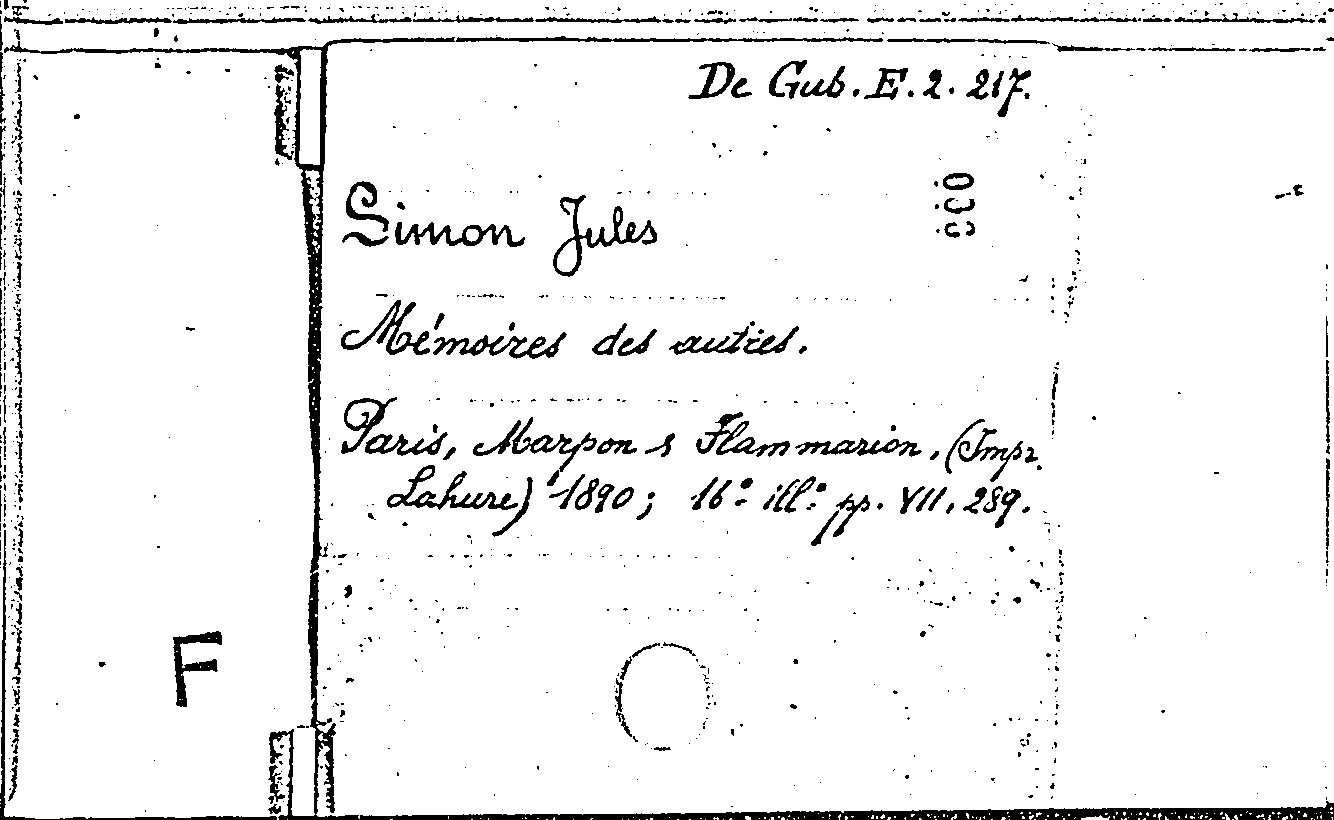 De Gub. E. 2. 217.
Simon Jules
Mémoires des autres.
Paris, Marpon & Flammarion, (Impr.
Lahure) 1890; 16º ill.º pp. VII, 289.
F